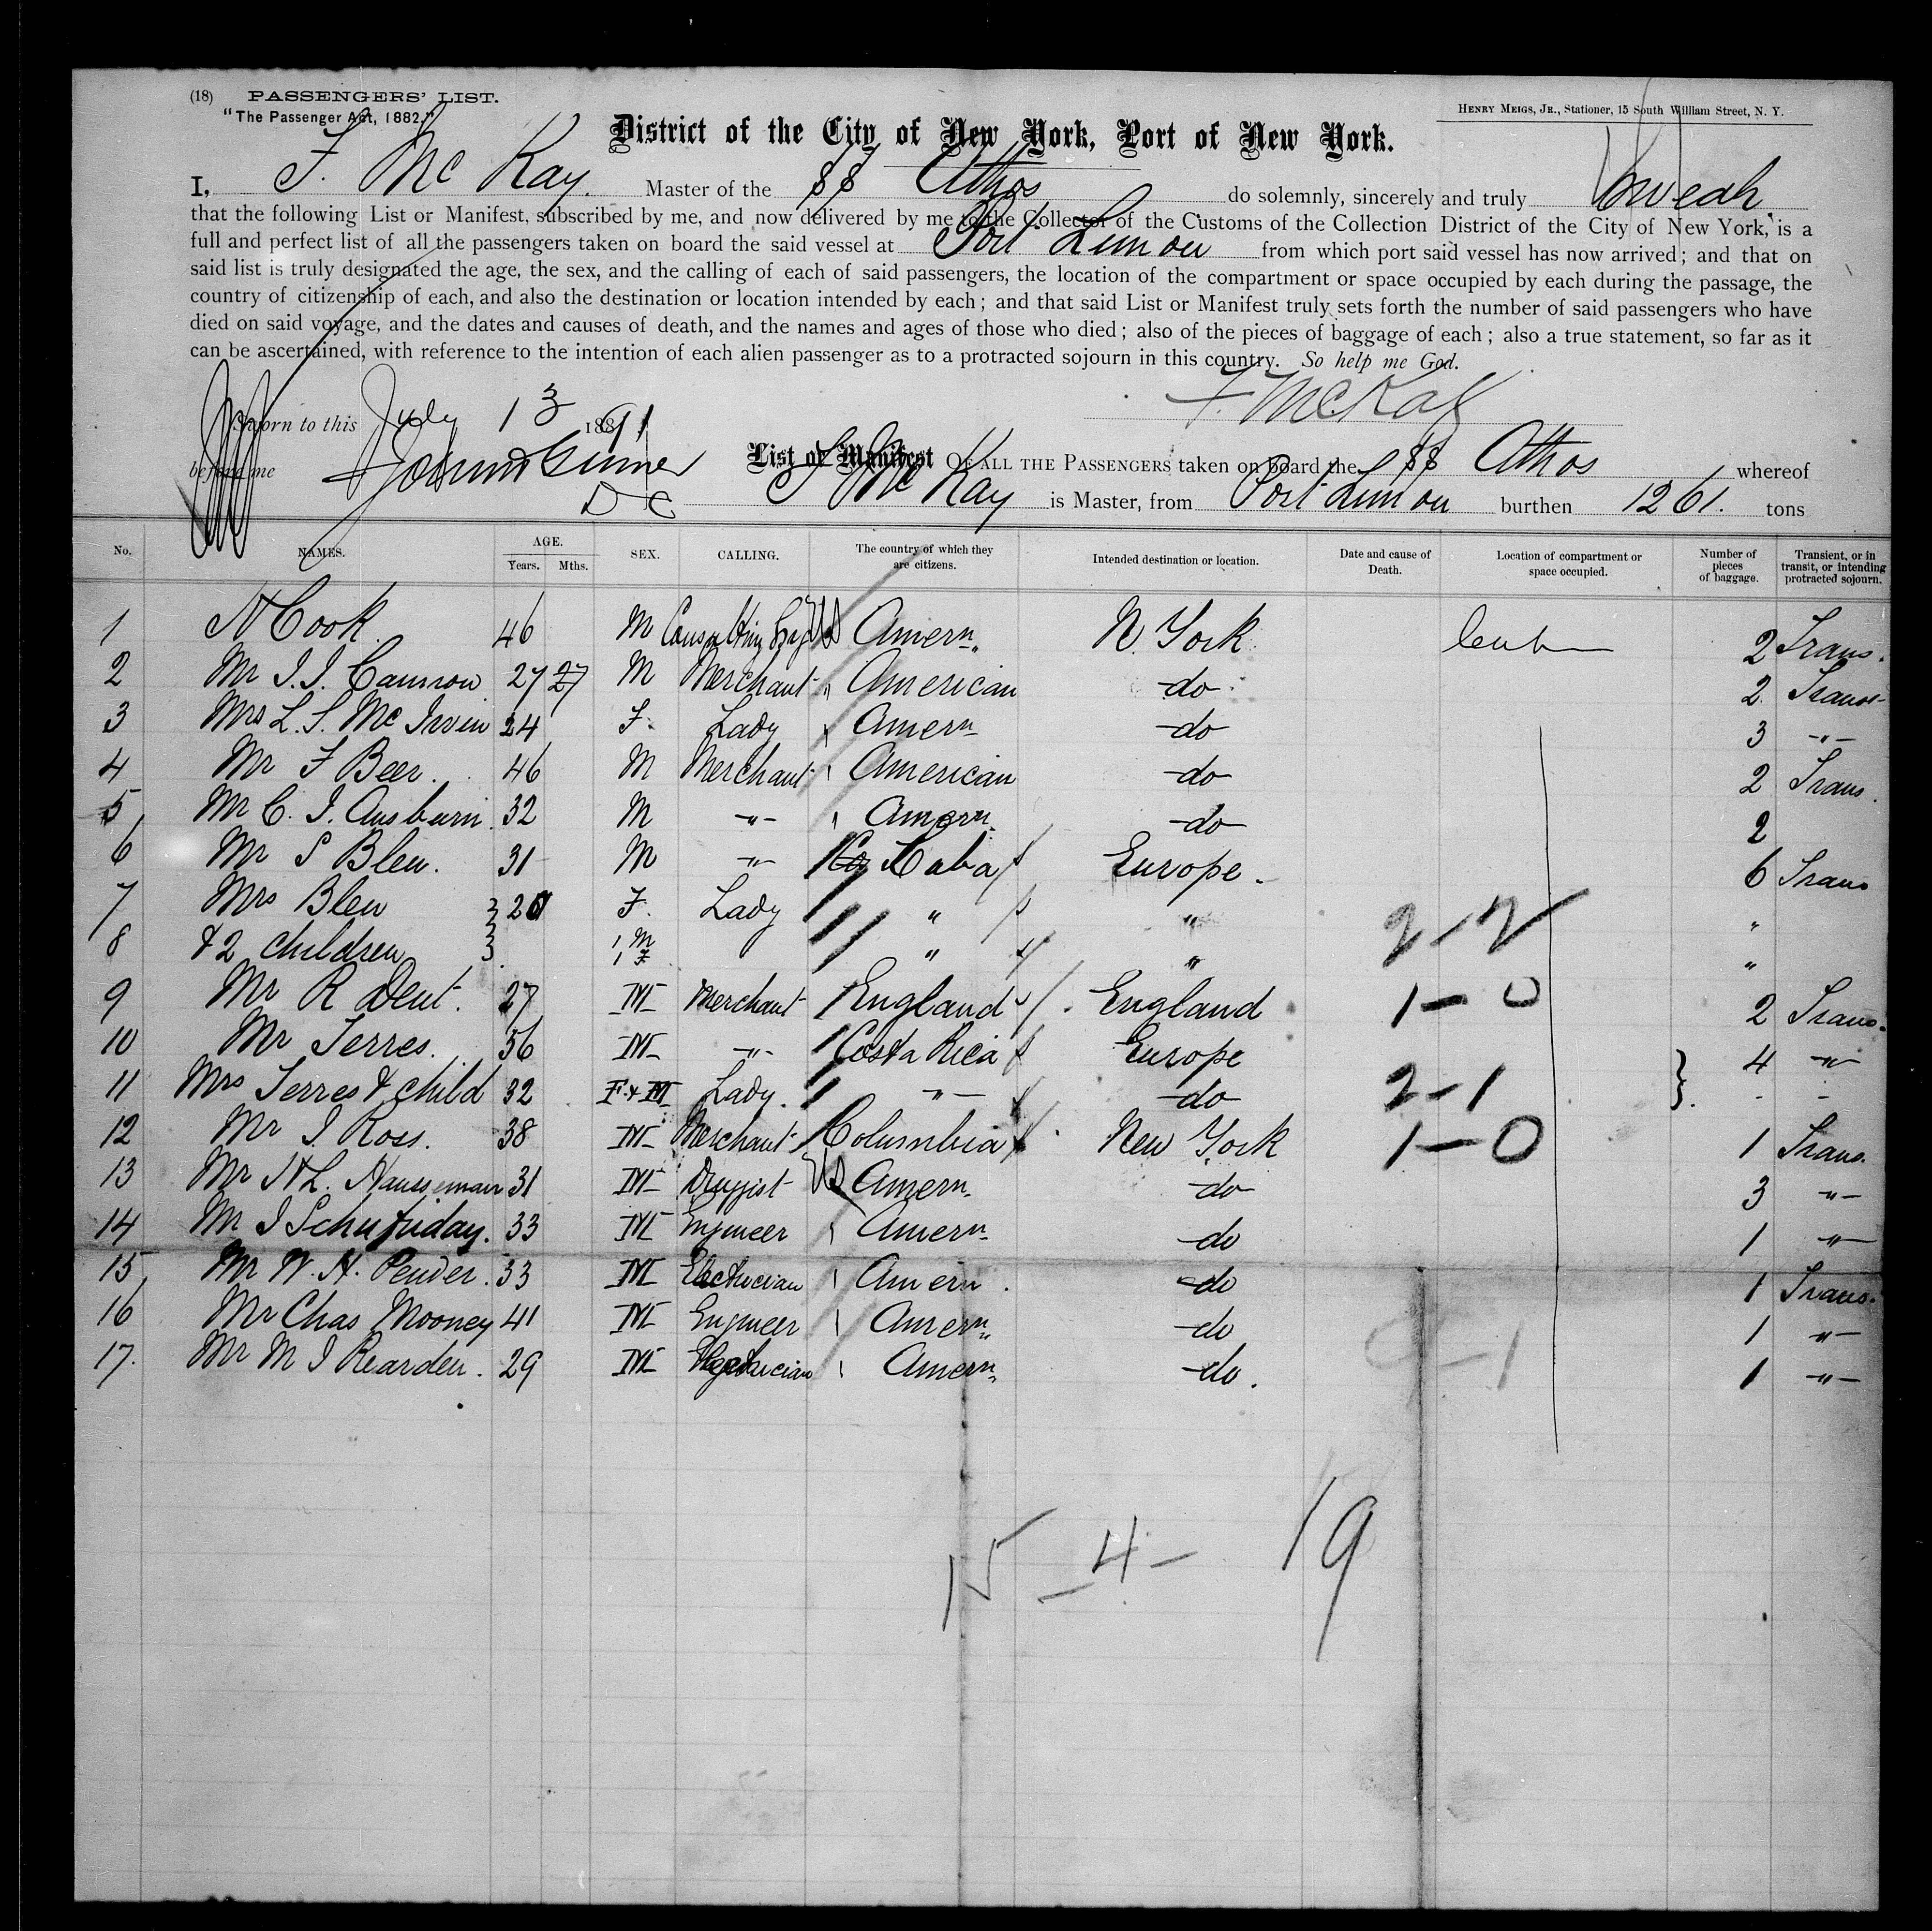 (18) PASSENGERS' LIST.
"The Passenger Act, 1882."
HENRY MEIGS, JR., Stationer, 15 South William Street, N. Y.
District of the City of New York, Port of New York.
I, F. McKay. Master of the SS Athos do solemnly, sincerely and truly swear
that the following List or Manifest, subscribed by me, and now delivered by me to the Collector of the Customs of the Collection District of the City of New York, is a
full and perfect list of all the passengers taken on board the said vessel at Port Limon from which port said vessel has now arrived; and that on
said list is truly designated the age, the sex, and the calling of each of said passengers, the location of the compartment or space occupied by each during the passage, the
country of citizenship of each, and also the destination or location intended by each; and that said List or Manifest truly sets forth the number of said passengers who have
died on said voyage, and the dates and causes of death, and the names and ages of those who died; also of the pieces of baggage of each; also a true statement, so far as it
can be ascertained, with reference to the intention of each alien passenger as to a protracted sojourn in this country. So help me God.
F. McKay
Sworn to this July 13 1891
before me
D C
List or Manifest OF ALL THE PASSENGERS taken on board the SS Athos whereof
F McKay is Master, from Port Limon burthen 1261. tons
No. NAMES. AGE. Years. Mths. SEX. CALLING. The country of which they are citizens. Intended destination or location. Date and cause of Death. Location of compartment or space occupied. Number of pieces of baggage. Transient, or in transit, or intending protracted sojourn.
1 N Cook. 46 M Consulting Eng US Amern. N. York 2 Trans.
2 Mr J. J. Cannon 27 27 M Merchant " American do 2 Trans
3 Mrs L. S. McIrvin 24 F. Lady Amern do 3 -"-
4 Mr F Beer. 46 M Merchant American do 2 Trans.
5 Mr C. J. Ausburn. 32 M -"- Amern. do 2
6 Mr S Blew. 31 M -"- Cuba Europe. 6 Trans
7 Mrs Blew F. Lady " " "
8 & 2 children 1 M 1 F " " 2-2 "
9 Mr R Dent. 27 M Merchant England England 1-0 2 Trans.
10 Mr Terres. 56 M -"- Costa Rica Europe 4 -"-
11 Mrs Terres & child 32 F. & M Lady. -"- do 2-1 - -
12 Mr J. Ross. 38 M Merchant Columbia New York 1-0 1 Trans.
13 Mr H L. Hausseman 31 M Druggist US Amern. do 3 -"-
14 Mr J 33 M Engineer Amern. do 1 -"-
15 Mr W. H. Pender. 33 M Electrician Amern. do 1 Trans.
16 Mr Chas Mooney 41 M Engineer Amern. do 1 -"-
17. Mr M J Rearden. 29 M Electrician Amern. do. 9-1 1 -"-
15 - 4 - 19